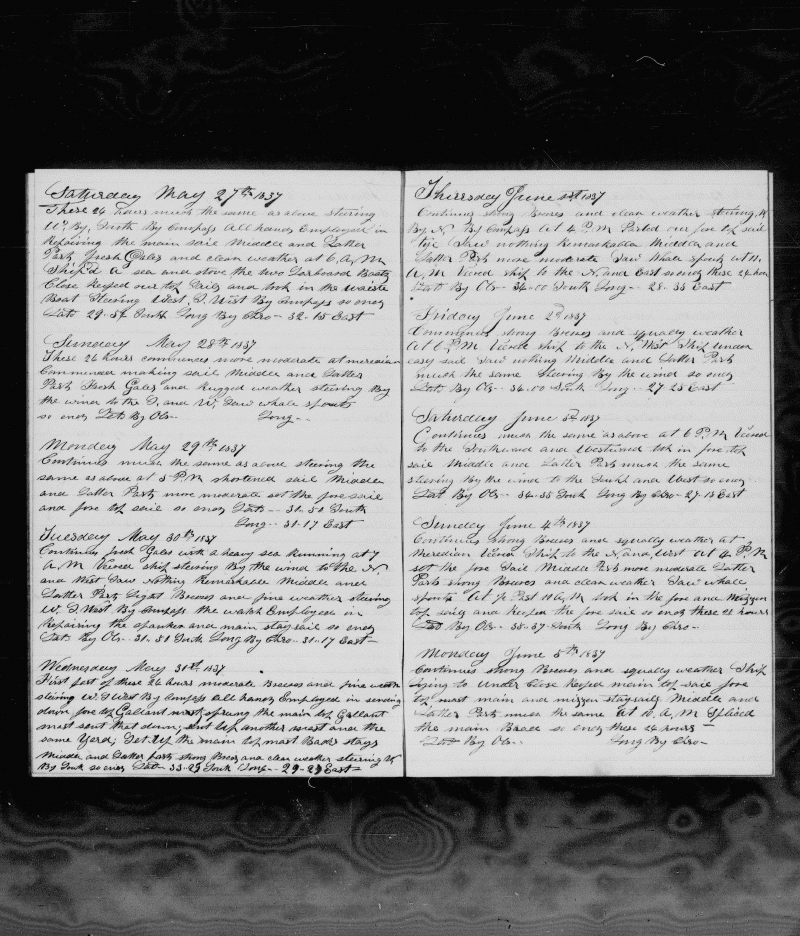 Saturday May 27th 1837
These 24 hours much the same as above steering
W. By South By Compass All hands Employed in
Repairing the main sail Middle and Latter
Part fresh Gales and clean weather at 6, A, M
Ship'd A sea and stove the two Larboard Boats
Close Reefed our top sails and took in the waiste
Boat Steering West, S. West By Compass so ends
Lat. 29-54 South Long By Chro-- 32-15 East
Sunday May 28th 1837
These 24 hours commences more moderate at meredian
Commenced making sail Middle and Latter
Part Fresh Gales and Rugged weather steering By
the wind to the S, and W, Saw whale spouts
so ends Lat By Ob-- Long--
Monday May 29th 1837
Continues much the same as above steering the
same as above at 5 P. M shortened sail Middle
and Latter Part more moderate set the fore sail
and fore top sail so ends Lat-- 31-50 South
Long-- 31-17 East
Tuesday May 30th 1837
Continues fresh Gales with a heavy sea Running at 7
A, M Veered ship steering By the wind to the N.
and West Saw Nothing Remarkable Middle and
Latter Part Light Breeses and fine weather steering
W. S. West By Compass the watch Employed in
Repairing the spanker and main stay sail so ends
Lat. By Ob-- 31-50 South Long By Chro-- 31-17 East
Wednesday May 31st 1837
First part of these 24 hours moderate Breeses and fine weather
steering W. S West By Compass All hands Employed in sending
down fore top Gallant mast sprung the main top Gallant
mast sent that down; sent up another mast and the
same Yard; Set Up the main top mast Back stays
Middle and Latter part strong Breeses and clean weather steering W
By South so ends Lat-- 33-29 South Long-- 29-29 East
Thursday June 1st 1837
Continues strong Breeses and clean weather steering, W
By, N. By Compass At 4 P. M Parted our fore top sail
tye Saw nothing Remarkable Middle and
Latter Part more moderate Saw Whale spouts at 11,
A, M Veered ship to the N. and East so ends these 24 hours
Lat By Ob-- 34-00 South Long-- 28-35 East
Friday June 2d 1837
Commences strong Breeses and squally weather
At 6 P. M Veered ship to the N. West Ship under
easy sail Saw nothing Middle and Latter Part
much the same Steering By the wind so ends
Lat By Ob-- 34-00 South Long-- 27-25 East
Saturday June 3d 1837
Continues much the same as above at 6 P. M Veered
to the Southward and Westward took in fore top
sail Middle and Latter Part much the same
steering By the wind to the South and West so ends
Lat By Ob-- 34-35 South Long By Chro-- 27-13 East
Sunday June 4th 1837
Continues strong Breeses and squally weather at
Meredian Veered Ship to the N. and West At 4, P, M
set the fore sail Middle Part more moderate Latter
Part strong Breeses and clean weather Saw whale
spouts At ½ Past 11 A, M took in the fore and Mizzen
top sails and Reefed the fore sail so ends these 24 hours
Lat By Ob-- 35-37 South Long By Chro--
Monday June 5th 1837
Continues strong Breeses and squally weather Ship
Lying to Under Close Reefed main top sail fore
top mast main and mizzen staysails Middle and
Latter Part much the same At 10, A, M Spliced
the main Brace so ends these 24 hours
Lat By Ob-- Long By Chro--